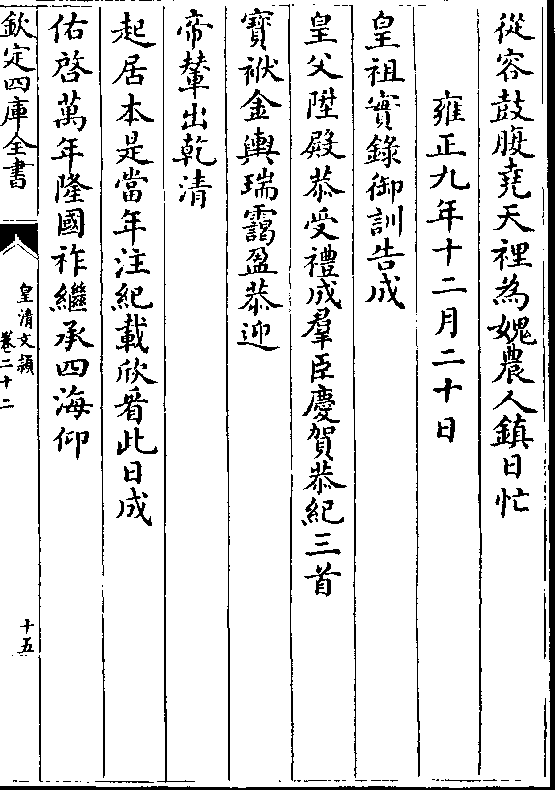 從容鼓腹堯天裡為媿農人鎮日忙
雍正九年十二月二十日
皇祖實錄御訓告成
皇父陞殿恭受禮成羣臣慶賀恭紀三首
寶袱金輿瑞靄盈恭迎
帝輦出乾清
起居本是當年注紀載欣看此日成
佑啓萬年隆國祚繼承四海仰
欽定四庫全書
皇清文穎
卷二十二
十五